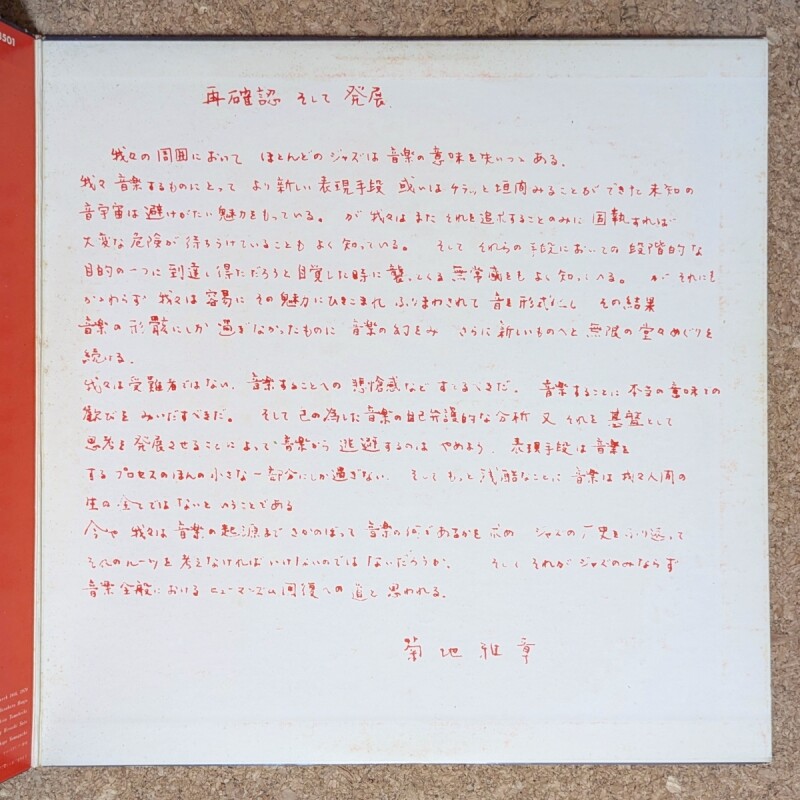 1501
再確認 そして 発展
我々の周囲において ほとんどのジャズは音楽の意味を失いつつある.
我々 音楽するものにとって より新しい表現手段 或いは チラッと垣間みることができた未知の
音宇宙は避けがたい魅力をもっている。 が 我々はまた それを追求することのみに 固執すれば
大変な危険が待ちうけていることも よく知っている。 そして それらの手段においての 段階的な
目的の一つに到達し得ただろうと自覚した時に襲ってくる無常感をもよく知っている。 が それにも
かかわらず 我々は容易に その魅力にひきこまれ ふりまわされて 音を形式化し その結果
音楽の形骸にしか 過ぎなかったものに 音楽の幻をみ さらに新しいものへと 無限の堂々めぐりを
続ける.
我々は受難者ではない. 音楽することへの 悲愴感など すてるべきだ. 音楽することに 本当の意味での
歓びを みいだすべきだ. そして 己の為した音楽の自己弁護的な分析 又 それを 基盤として
思考を発展させることによって音楽から 逃避するのは やめよう. 表現手段は音楽を
する プロセスのほんの小さな一部分にしか過ぎない. そして もっと残酷なことに 音楽は 我々人間の
生の全てではないと いうことである
今や 我々は音楽の起源までさかのぼって 音楽の何であるかを求め ジャズの歴史をふり返って
それのルーツを考えなければいけないのではないだろうか. そして それがジャズのみならず
音楽全般における ヒューマニズム回復への道と思われる.
菊地雅章